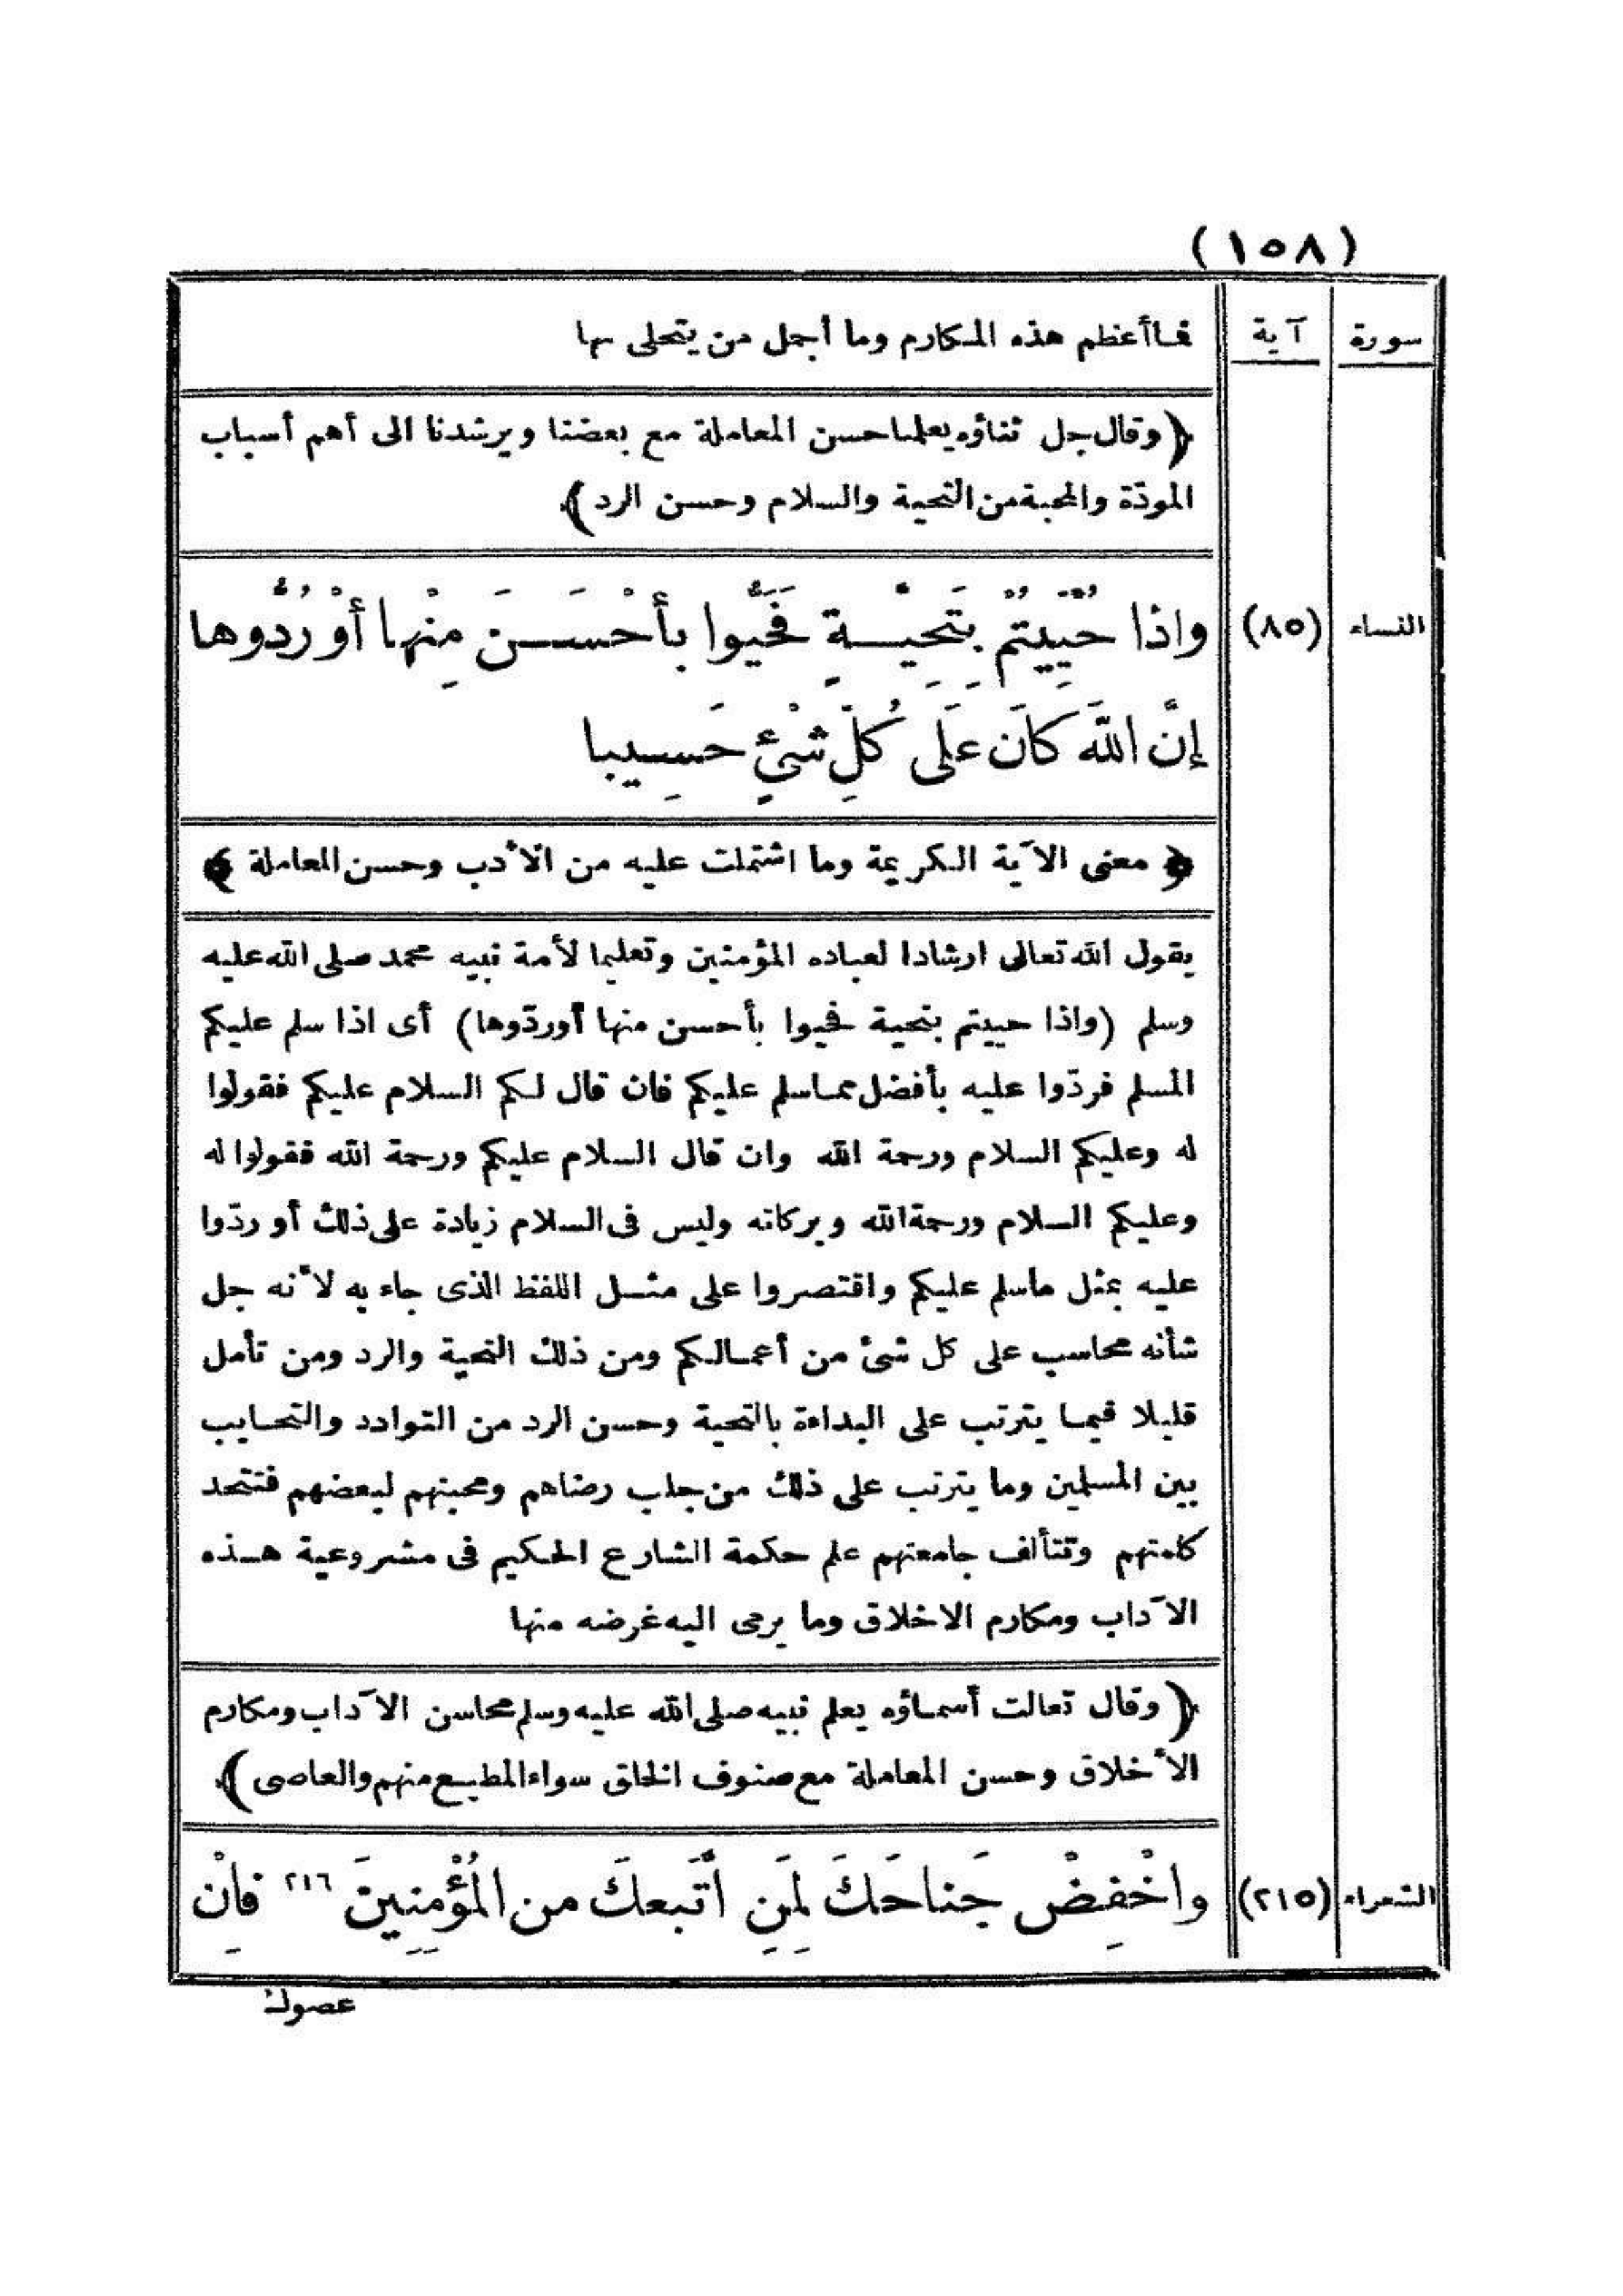 (١٥٨)
سورة آية فما أعظم هذه المكارم وما أجمل من يتحلى بها
﴿ وقال جل ثناؤه يعلمنا حسن المعاملة مع بعضنا ويرشدنا الى أهم أسباب
المودّة والمحبة من التحية والسلام وحسن الرد ﴾
النساء (٨٥) واذا حُيِّيتُمْ بِتَحِيَّةٍ فَحَيُّوا بأَحْسَنَ مِنْها أوْ رُدُّوها
إنَّ اللَّهَ كانَ عَلَى كُلِّ شْئٍ حَسِيبا
﴿ معنى الآية الكريمة وما اشتملت عليه من الأدب وحسن المعاملة ﴾
يقول الله تعالى ارشادا لعباده المؤمنين وتعليما لأمة نبيه محمد صلى الله عليه
وسلم (واذا حييتم بتحية فحيوا بأحسن منها أوردّوها) أى اذا سلم عليكم
المسلم فردّوا عليه بأفضل مما سلم عليكم فان قال لكم السلام عليكم فقولوا
له وعليكم السلام ورحمة الله وان قال السلام عليكم ورحمة الله فقولوا له
وعليكم السلام ورحمة الله وبركاته وليس فى السلام زيادة على ذلك أو ردّوا
عليه بمثل ماسلم عليكم واقتصروا على مثل اللفظ الذى جاء به لأنه جل
شأنه محاسب على كل شئ من أعمالكم ومن ذلك التحية والرد ومن تأمل
قليلا فيما يترتب على البداءة بالتحية وحسن الرد من التوادد والتحابب
بين المسلمين وما يترتب على ذلك من جلب رضاهم ومحبتهم لبعضهم فتتحد
كلمتهم وتتألف جامعتهم علم حكمة الشارع الحكيم فى مشروعية هذه
الآداب ومكارم الاخلاق وما يرمى اليه غرضه منها
﴿ وقال تعالت أسماؤه يعلم نبيه صلى الله عليه وسلم محاسن الآداب ومكارم
الأخلاق وحسن المعاملة مع صنوف الخلق سواء المطيع منهم والعاصى ﴾
الشعراء (٢١٥) واخْفِضْ جَناحَكَ لِمَنِ اتَّبَعكَ من المُؤْمِنِينَ ٢١٦ فاِنْ
عصوك